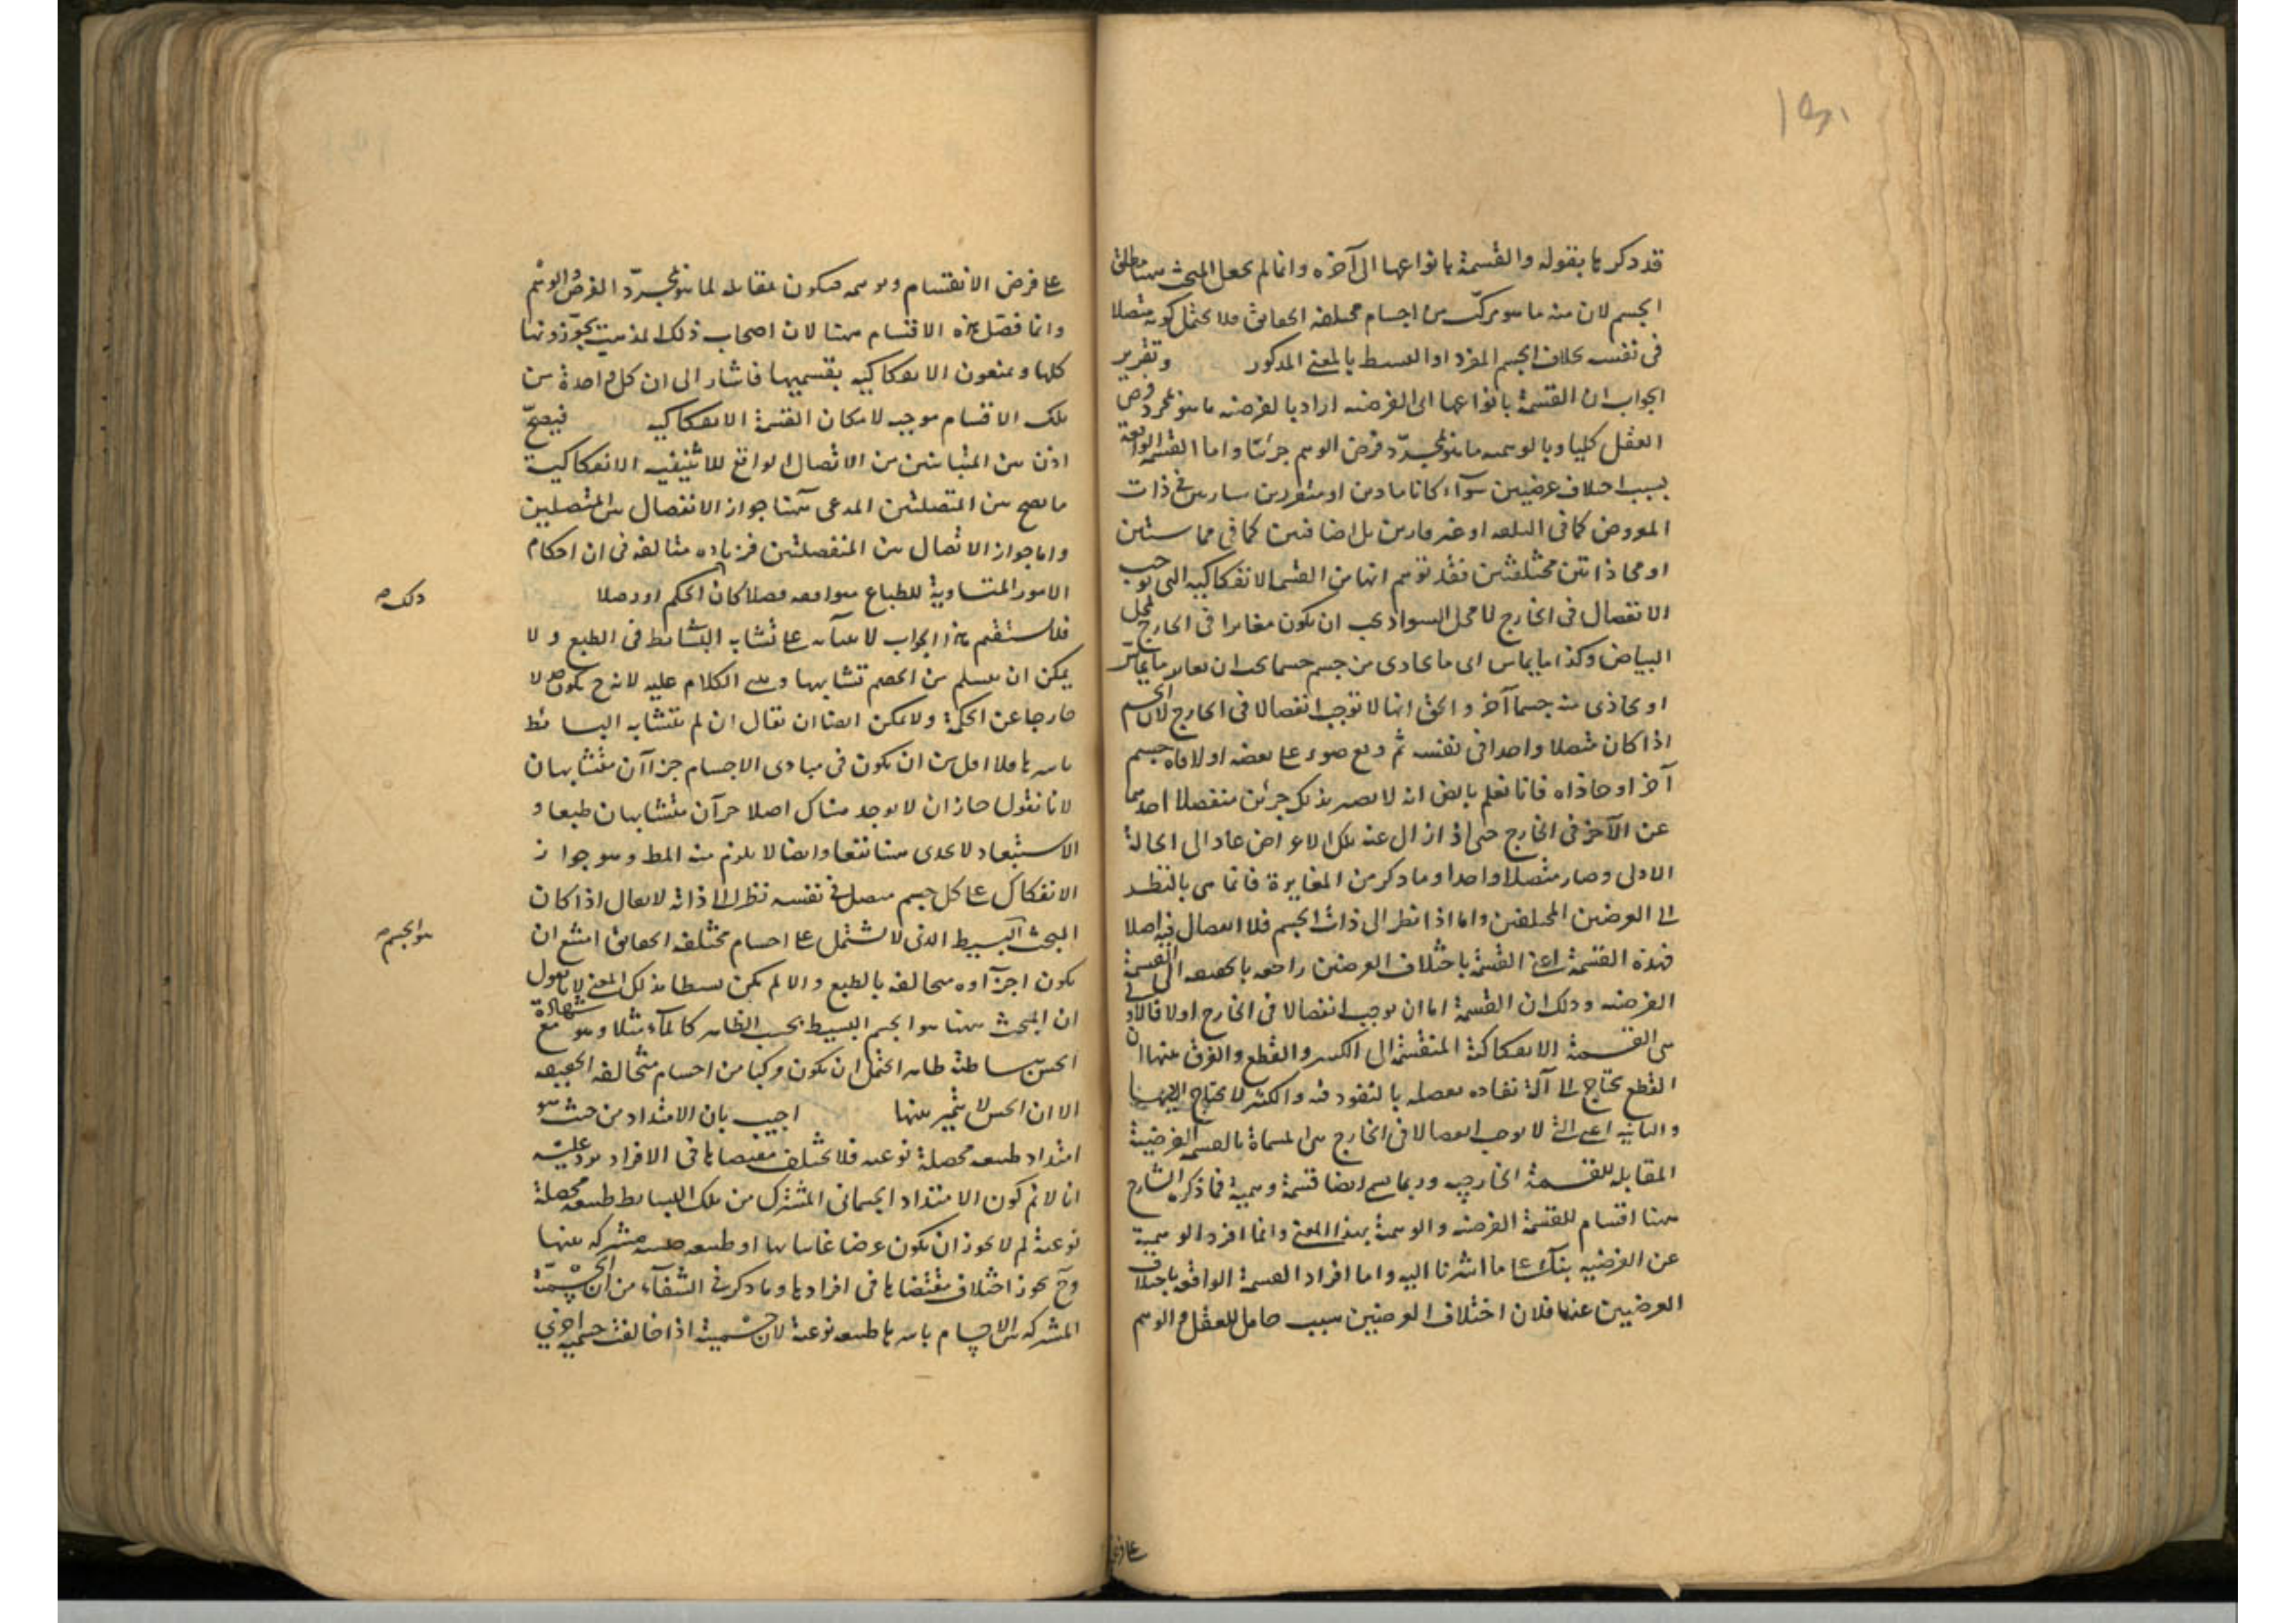 قد ذكرها بقوله والقسمة بانواعها الى آخره وانما لم يجعل المبحث ههنا مطلق
الجسم لان منه ما هو مركب من اجسام مختلفه الحقائق فلا يحتمل كونه متصلا
فى نفسه بخلاف الجسم المفرد اوالبسيط بالمعنى المذكور وتقرير
الجواب ان القسمة بانواعها الى الفرضيه اراد بالفرضيه ما هو بمجرد فرض
العقل كليا وبالوهميه ما هو بمجرّد فرض الوهم جزئيا واما القسمة الواقعة
بسبب اختلاف عرضيين سوآء كانا قارين او متقررين ساريين فى ذات
المعروض كما فى البلقه او غير قارين بل اضافيين كما فى مماستين
او محاذاتين مختلفتين فقد توهم انها من القسمة الانفكاكيه التى توجب
الانفصال فى الخارج لان محل السواد يجب ان يكون مغايرا فى الخارج لمحل
البياض وكذا ما يماس اى ما يحاذى من جسم جسما يجب ان يغاير ما يماس
او يحاذى منه جسما آخر والحق انها لا توجب انفصالا فى الخارج لان الجسم
اذا كان متصلا واحدا فى نفسه ثم وقع ضوء على بعضه او لاقاه جسم
آخر او حاذاه فانا نعلم بالض انه لا يصير بذلك جزئين منفصلا احدهما
عن الآخر فى الخارج حتى اذا زال عنه تلك الاعراض عاد الى الحالة
الاولى وصار متصلا واحدا وما ذكر من المغايرة فانما هى بالنظر
الى العرضين المختلفين واما اذا نظر الى ذات الجسم فلا انفصال فيه اصلا
فهذه القسمة اعنى القسمة باختلاف العرضين راجعه بالحقيقه الى القسمة
الفرضيه وذلك ان القسمة اما ان توجب انفصالا فى الخارج اولا فالاولى
هى القسمة الانفكاكية المنقسمة الى الكسر والقطع والفرق بينهما ان
القطع يحتاج الى آلة نفاذه مفصله بالنفوذ فيه والكسر لا يحتاج اليها
والثانيه اعنى التى لا توجب انفصالا فى الخارج هى المسماة بالقسمة الفرضية
المقابله للقسمة الخارجيه وربما سمى ايضا قسمة وهمية فما ذكره الشارح
ههنا اقسام للقسمة الفرضيه والوهمية بهذا المعنى وانما افرد الوهمية
عن الفرضيه بنآء على ما اشرنا اليه واما افراد القسمة الواقعه باختلاف
العرضيين عنهما فلان اختلاف العرضيين سبب حامل للعقل والوهم
على فرض
على فرض الانقسام وتوهمه فيكون مقابله لما هو بمجرّد الفرض والوهم
وانما فصّل هذه الاقسام ههنا لان اصحاب ذلك المذهب يجوّزونها
كلها ويمنعون الانفكاكيه بقسميها فاشار الى ان كل واحدة من
تلك الاقسام موجب لامكان القسمة الانفكاكيه فيصحّ
اذن بين المتباينين من الاتصال الواقع للاثنينيه الانفكاكية
ما يصح بين المتصلين المدعى ههنا جواز الانفصال بين المتصلين
واما جواز الاتصال بين المنفصلين فزياده مبالغه فى ان احكام
الامور المتساوية للطباع متوافقه فصلا كان الحكم او وصلا
ذلك صح
فلا يستقيم هذا الجواب لابتنآئه على تشابه البسائط فى الطبع ولا
يمكن ان يتسلم من الخصم تشابهها ويبنى الكلام عليه لانه ح يكون لا
خارجا عن الحكمة ولا يمكن ايضا ان يقال ان لم يتشابه البسائط
باسرها فلا اقل من ان يكون فى مبادى الاجسام جزآن متشابهان
لانا نقول جاز ان لا يوجد هناك اصلا جزآن متشابهان طبعا و
الاستبعاد لا يجدى ههنا نفعا وايضا لا يلزم منه المط وهو جواز
الانفكاك على كل جسم متصل فى نفسه نظرا الى ذاته لا يقال اذا كان
المبحث البسيط الذى لا يشتمل على اجسام مختلفه الحقائق امتنع ان
هو الجسم صح
يكون اجزآوه متخالفه بالطبع والا لم يكن بسيطا بذلك المعنى لانا نقول
ان المبحث ههنا هو الجسم البسيط بحسب الظاهر كالمآء مثلا وهو مع شهادة
الحس بساطته ظاهر احتمل ان يكون مركبا من اجسام متخالفه الحقيقه
الا ان الحس لا يتميز بينها اجيب بان الامتداد من حيث هو
امتداد طبيعه محصلة نوعيه فلا يختلف مقتضاها فى الافراد ورد عليه
انا لا نم كون الامتداد الجسمانى المشترك بين تلك البسايط طبيعه محصلة
نوعية لم لا يجوز ان يكون عرضا عاما لها او طبيعه جنسيه مشتركه بينها
وح يجوز اختلاف مقتضاها فى افرادها وما ذكر فى الشفآء من ان الجسمية
المشتركه بين الاجسام باسرها طبيعه نوعية لان جسمية اذا خالفت جسمية اخرى